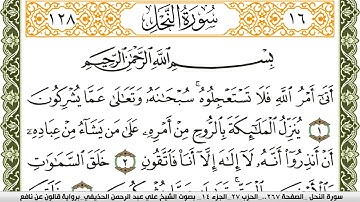 ١٢٨ سُورَةُ النَّحْلِ ١٦
بِسْمِ اللَّهِ الرَّحْمَٰنِ الرَّحِيمِ
أَتَىٰ أَمْرُ اللَّهِ فَلَا تَسْتَعْجِلُوهُ سُبْحَانَهُ وَتَعَالَىٰ عَمَّا يُشْرِكُونَ
١ يُنَزِّلُ الْمَلَٰٓئِكَةَ بِالرُّوحِ مِنْ أَمْرِهِ عَلَىٰ مَنْ يَشَآءُ مِنْ عِبَادِهِ
أَنْ أَنذِرُوٓا أَنَّهُ لَآ إِلَٰهَ إِلَّآ أَنَا فَاتَّقُونِ ٢ خَلَقَ السَّمَٰوَٰتِ
سورة النحل .. الصفحة ٢٦٧.. الحزب ٢٧ .. الجزء ١٤ .. بصوت الشيخ علي عبد الرحمن الحذيفي .. برواية قالون عن نافع